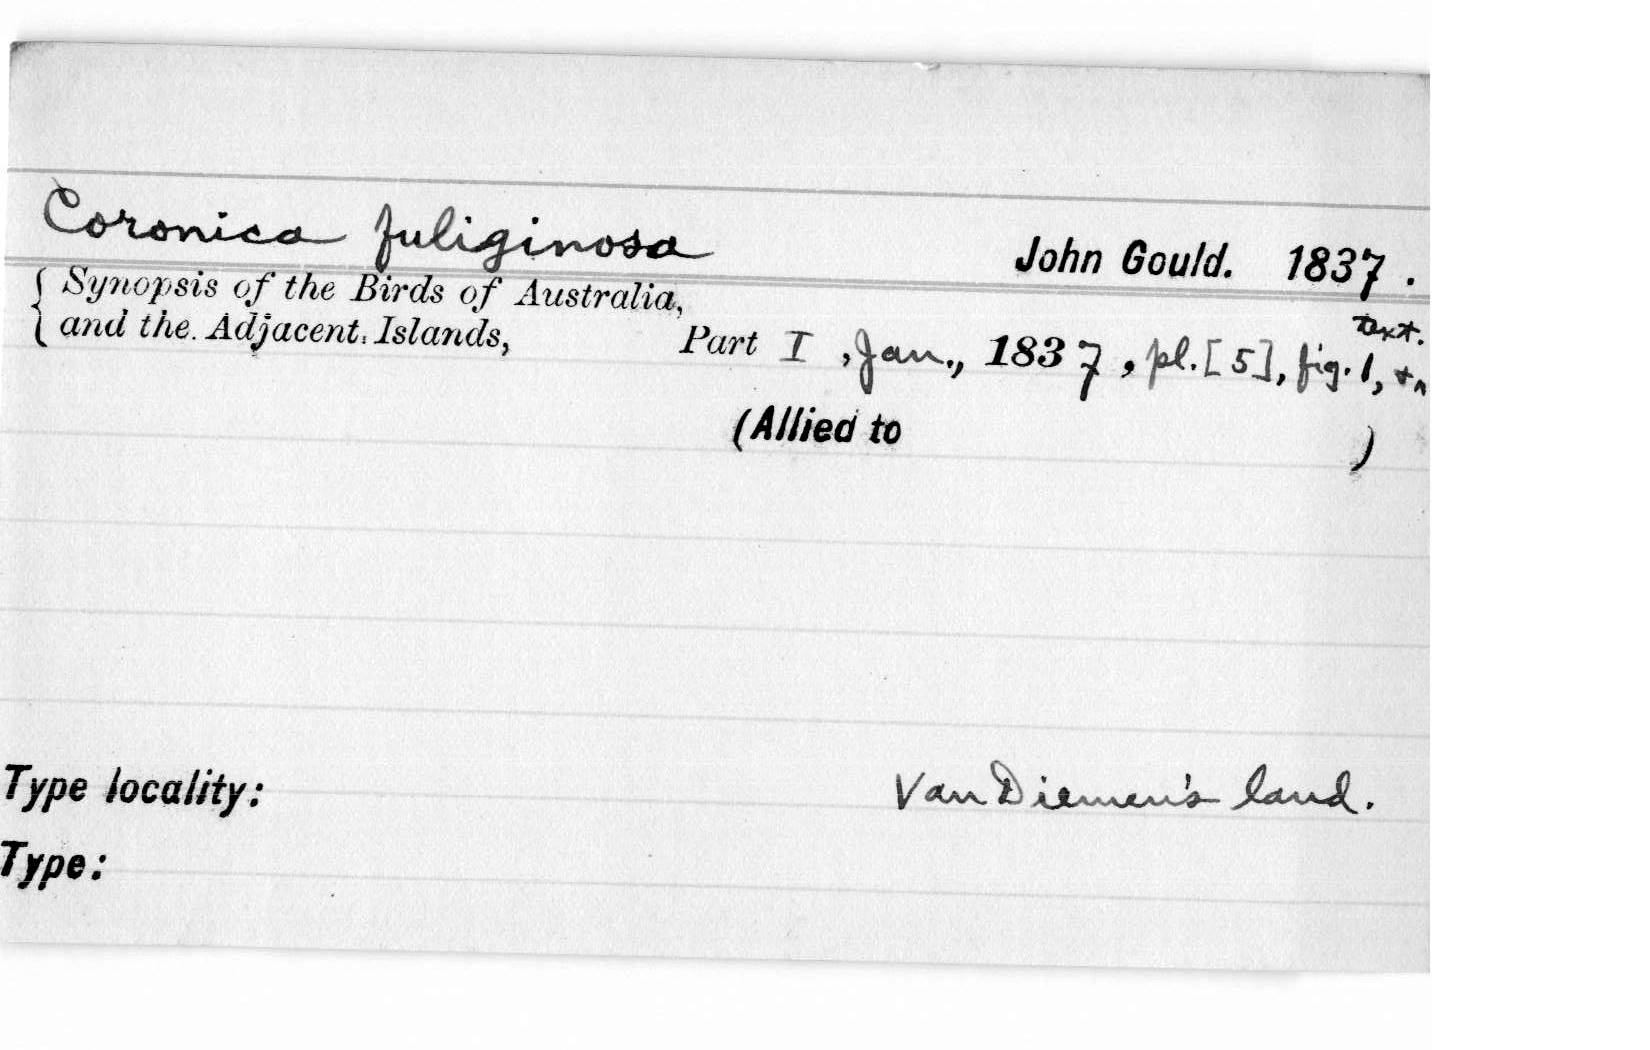 Coronica fuliginosa John Gould. 1837.
{ Synopsis of the Birds of Australia,
and the Adjacent Islands, Part I, Jan., 1837, pl. [5], fig. 1, + text.
(Allied to )
Type locality: Van Diemen's land.
Type: